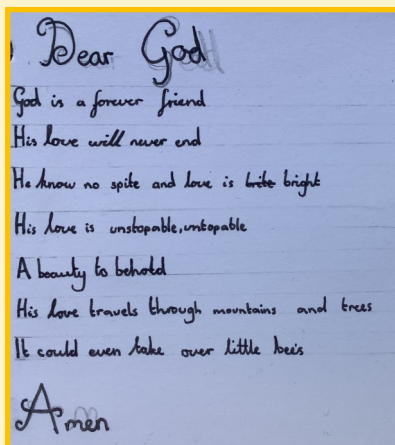 Dear God
God is a forever friend
His love will never end
He know no spite and love is brite bright
His love is unstopable, untopable
A beauty to behold
His love travels through mountains and trees
It could even take over little bees
Amen